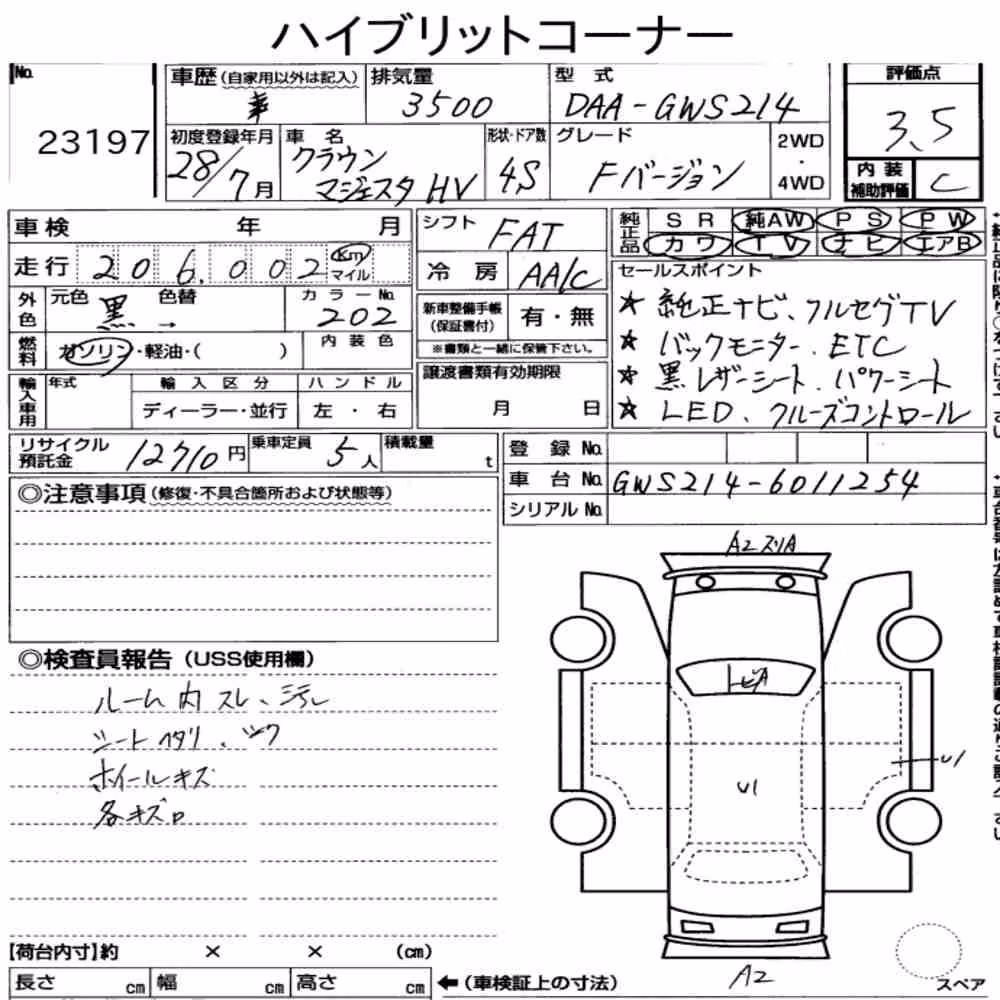 ハイブリットコーナー
No.
23197
車歴(自家用以外は記入)
排気量 3500
型式 DAA-GWS214
評価点 3.5
初度登録年月 28/7月
車名 クラウン マジェスタHV
形状・ドア数 4S
グレード Fバージョン
2WD・4WD
内装補助評価 C
車検 年 月
シフト FAT
純正品 SR 純AW PS PW
カワ TV ナビ エアB
走行 206,002 Km マイル
冷房 AA/C
セールスポイント
外色 元色 黒 → 色替 カラーNo. 202
新車整備手帳(保証書付) 有・無
★ 純正ナビ、フルセグTV
★ バックモニター、ETC
燃料 ガソリン・軽油・( ) 内装色
※書類と一緒に保管下さい。
★ 黒レザーシート、パワーシート
輸入車用 年式 輸入区分 ハンドル
譲渡書類有効期限
★ LED、クルーズコントロール
ディーラー・並行 左・右
月 日
リサイクル預託金 12710円
乗車定員 5人
積載量 t
登録No.
車台No. GWS214-6011254
シリアルNo.
◎注意事項(修復・不具合箇所および状態等)
A2 スリA
◎検査員報告(USS使用欄)
トビA
ルーム内スレ、汚レ
シートヘタリ、シワ
U1
ホイールキズ
U1
各キズ
【荷台内寸】約 × × (cm)
長さ cm 幅 cm 高さ cm
←(車検証上の寸法)
A2
スペア